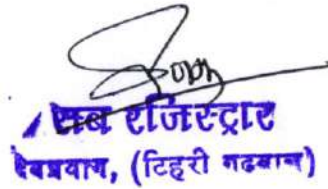 सब रजिस्ट्रार
देवप्रयाग, (टिहरी गढवाल)